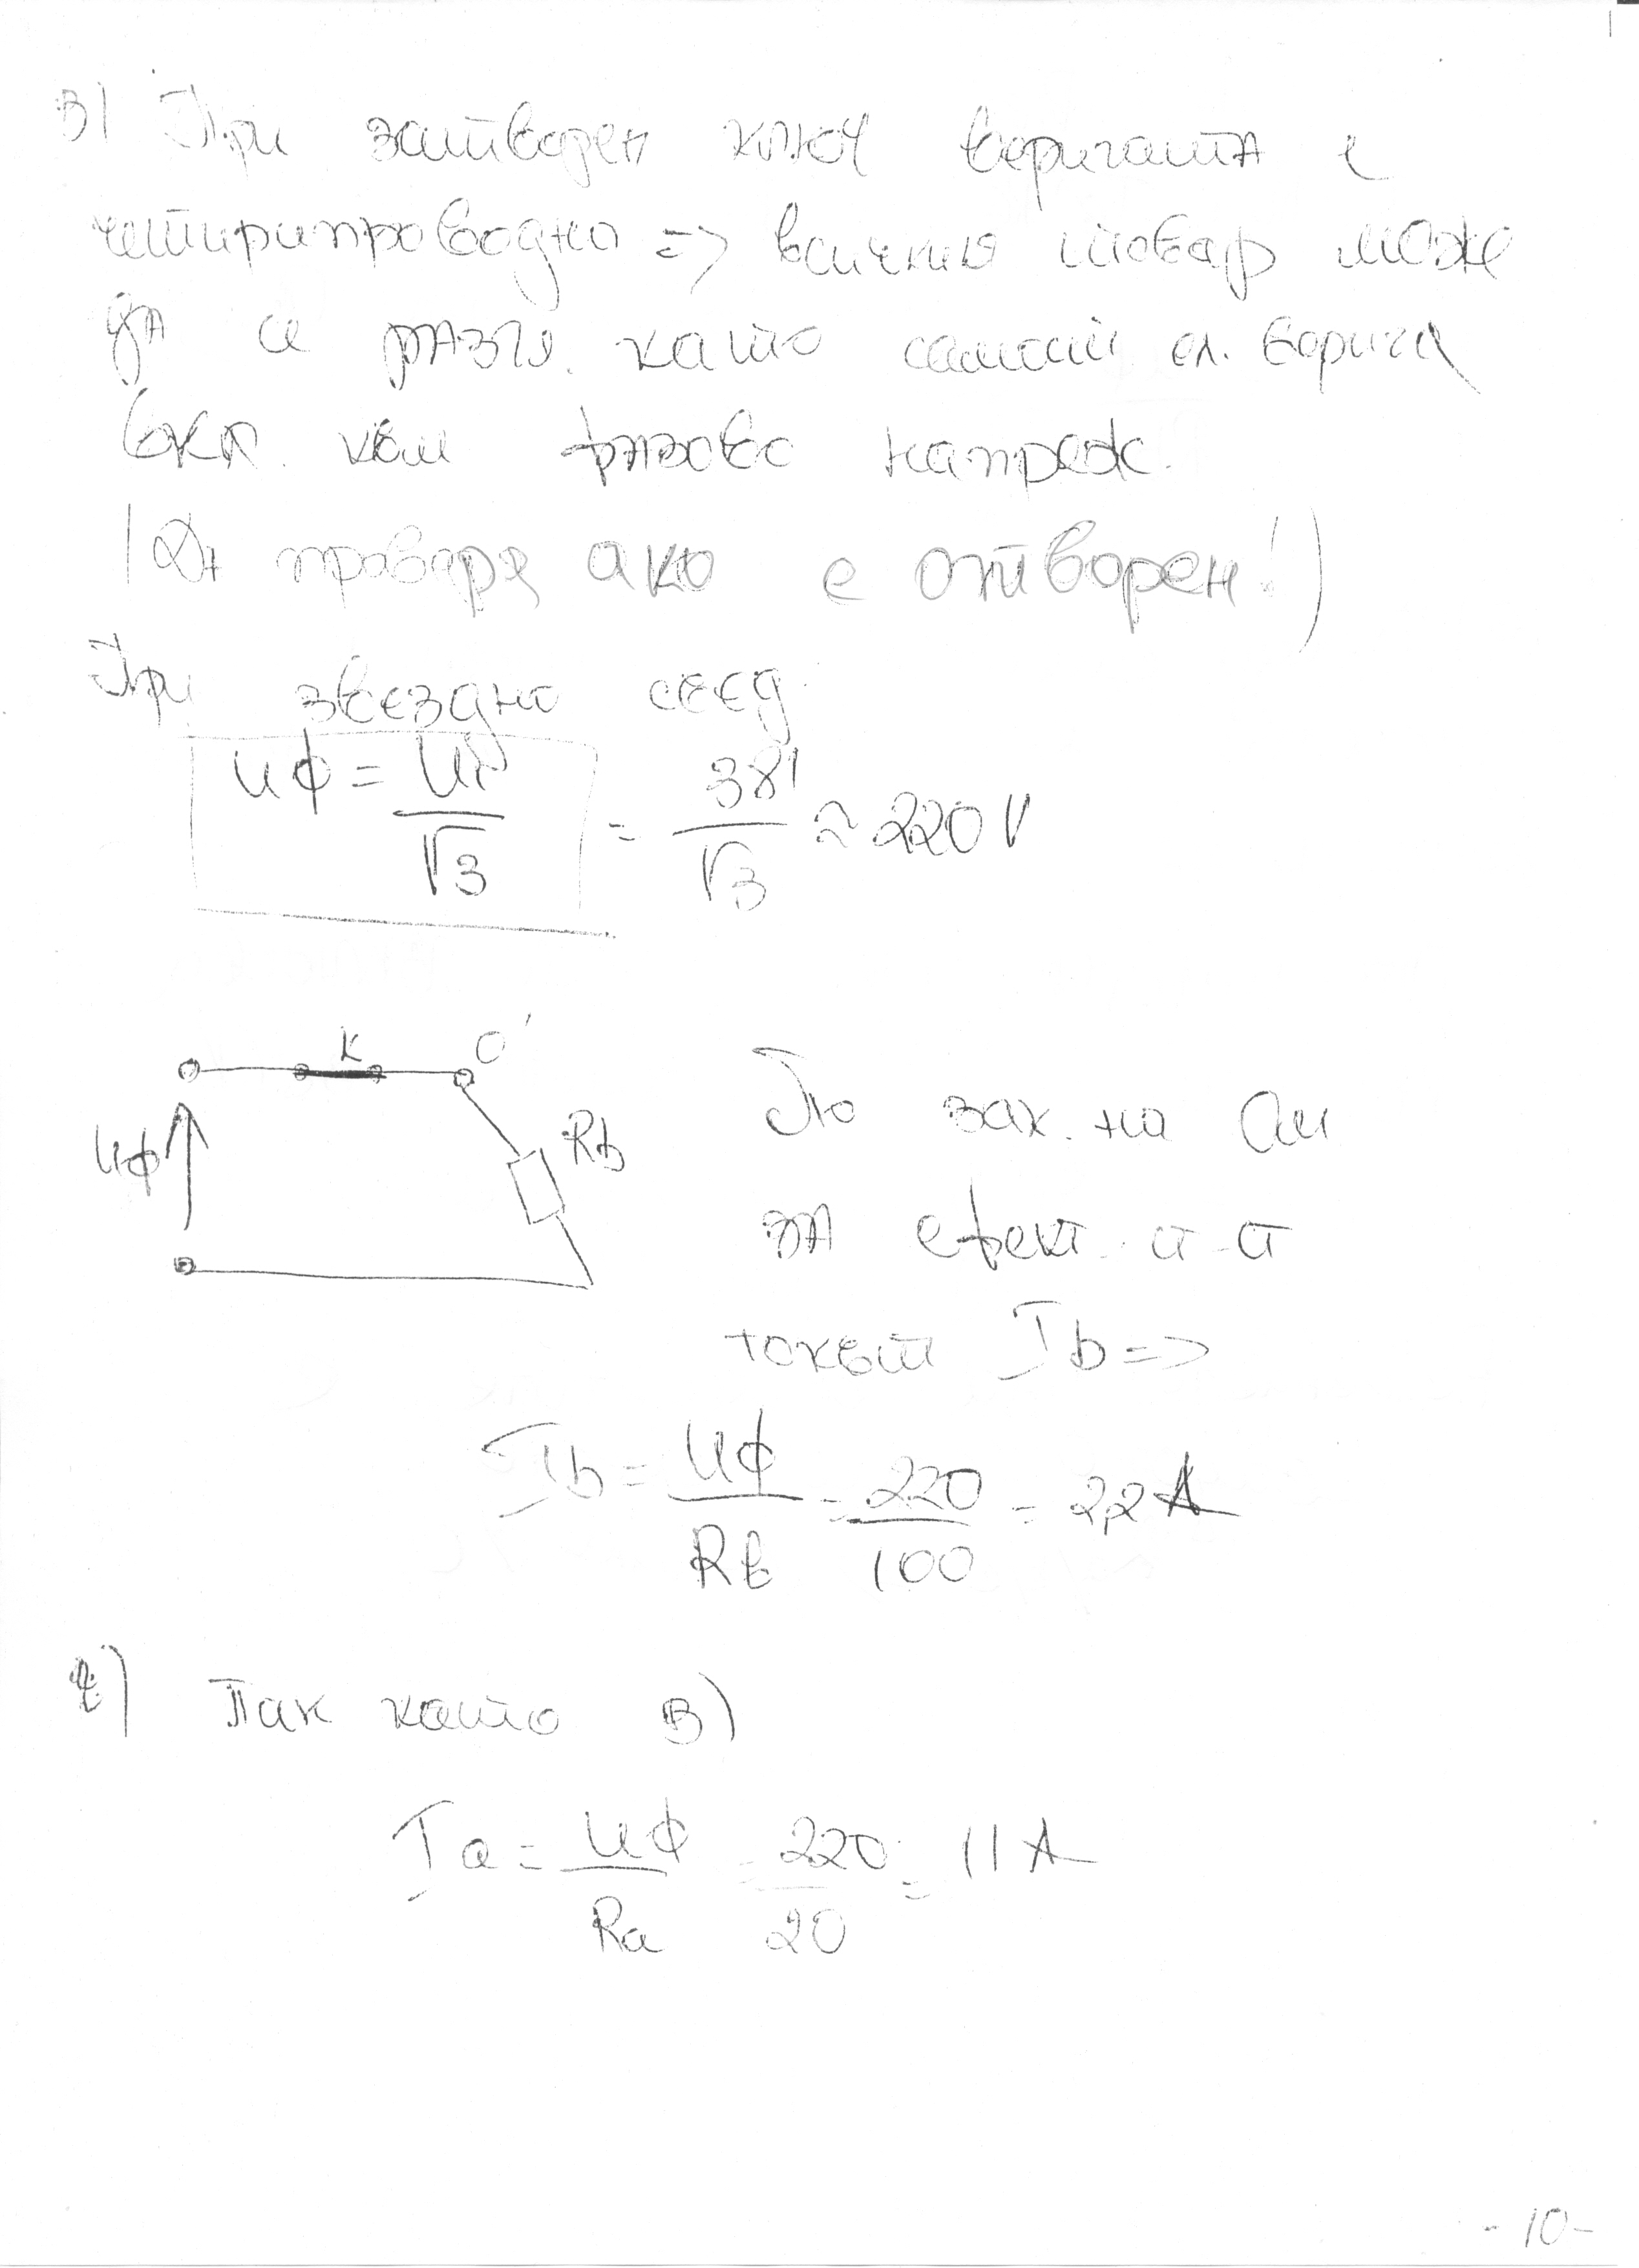 в) При затворен ключ веригата е
четирипроводна => всички товар може
да се разгл. като самост ел. верига
вкл. към фазово напреж.
(Да проверя ако е отворен!)
При звездно свед.
Uф = Uл / √3 = 381 / √3 ≈ 220 V
K O'
Uф Rb
По зак. на Ом
за ефект. ст-ст
токът Ib =>
Ib = Uф / Rb = 220 / 100 = 2,2 A
г) Пак като в)
Ia = Uф / Ra = 220 / 20 = 11 A
- 10 -